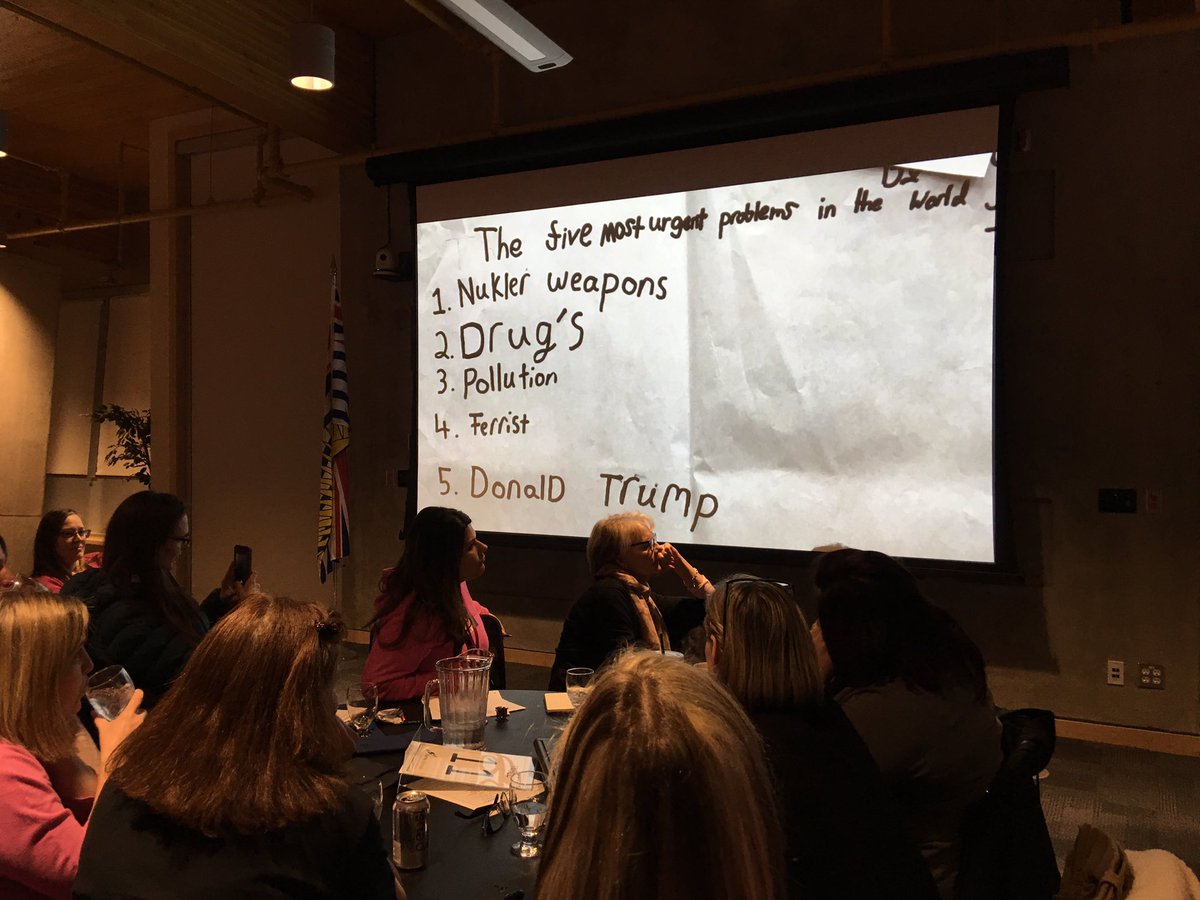 The five most urgent problems in the World
1. Nukler weapons
2. Drug's
3. Pollution
4. Ferrist
5. DonalD Trump